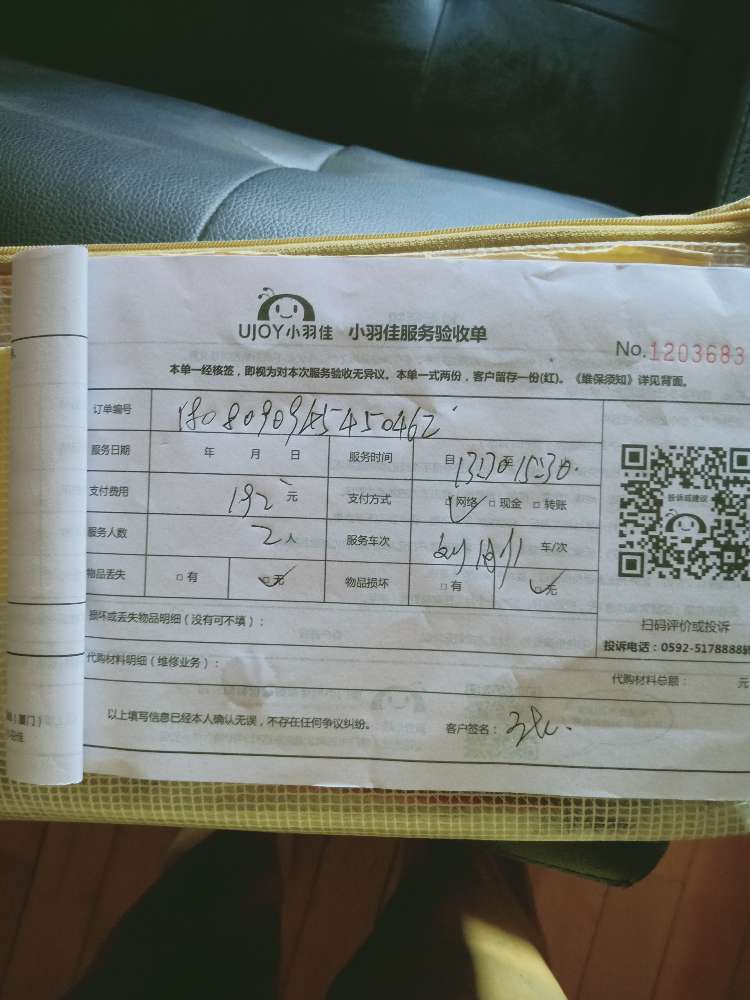 UJOY小羽佳 小羽佳服务验收单
No.1203683
本单一经核签，即视为对本次服务验收无异议。本单一式两份，客户留存一份(红)。《维保须知》详见背面。
订单编号
服务日期 年 月 日 服务时间 自13:30至15:30
支付费用 192元 支付方式 ☑网络 □现金 □转账
服务人数 2人 服务车次 车/次
物品丢失 □有 ☑无 物品损坏 □有 ☑无
投诉或建议
扫码评价或投诉
投诉电话：0592-5178888转
损坏或丢失物品明细（没有可不填）：
代购材料明细（维修业务）： 代购材料总额： 元
以上填写信息已经本人确认无误，不存在任何争议纠纷。 客户签名：